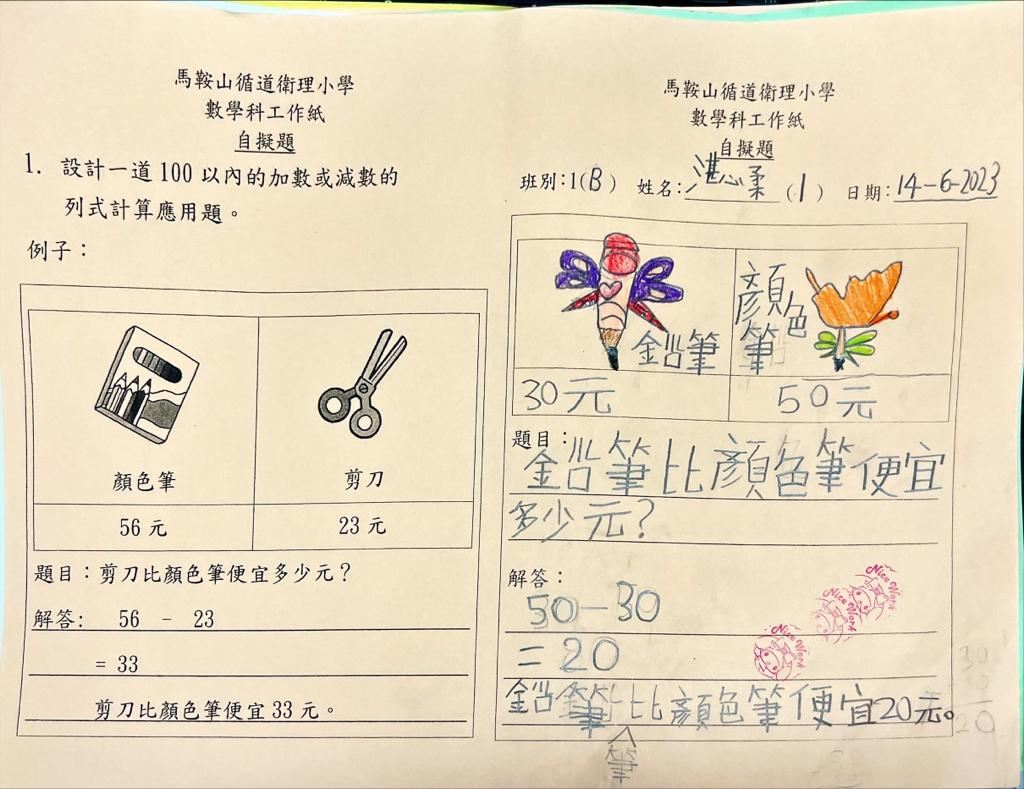 馬鞍山循道衛理小學
數學科工作紙
自擬題
1. 設計一道100以內的加數或減數的
列式計算應用題。
例子：
顏色筆
剪刀
56元
23元
題目：剪刀比顏色筆便宜多少元？
解答: 56 - 23
= 33
剪刀比顏色筆便宜33元。
馬鞍山循道衛理小學
數學科工作紙
自擬題
班別:1(B) 姓名:湛心柔 (1) 日期:14-6-2023
鉛筆
顏色筆
30元
50元
題目：
鉛筆比顏色筆便宜
多少元?
解答：
50-30
=20
鉛筆比顏色筆便宜20元。
筆
Nice Work
Nice Work
Nice Work
30
20